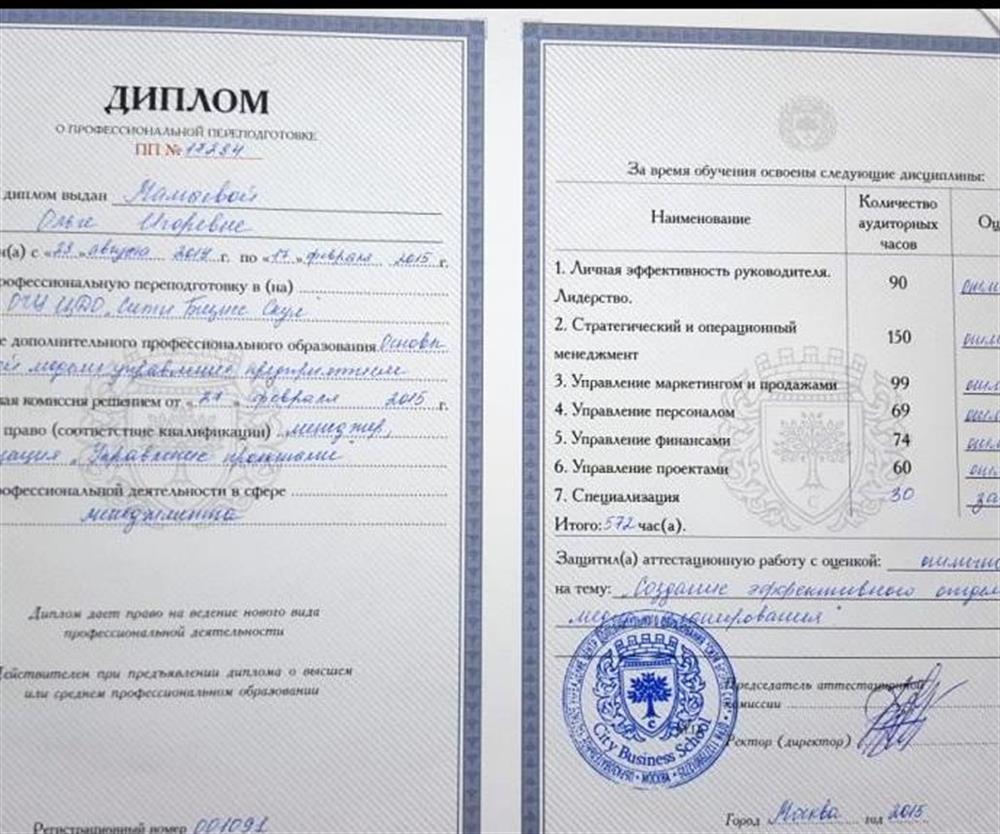 ДИПЛОМ
О ПРОФЕССИОНАЛЬНОЙ ПЕРЕПОДГОТОВКЕ
ПП № 17284
диплом выдан Мамыевой
Ольге Игоревне
н(а) с «29» августа 2014 г. по «17» февраля 2015 г.
рофессиональную переподготовку в (на)
ОЧУ ЦДО „Сити Бизнес Скул
е дополнительного профессионального образования Основы
ой модели управления предприятием
ная комиссия решением от « 27 » февраля 2015 г.
право (соответствие квалификации) менеджер,
зация „Управление проектами
рофессиональной деятельности в сфере
менеджмента
Диплом дает право на ведение нового вида
профессиональной деятельности
Действителен при предъявлении диплома о высшем
или среднем профессиональном образовании
Регистрационный номер 001091
За время обучения освоены следующие дисциплины:
Наименование
Количество аудиторных часов
Оц
1. Личная эффективность руководителя. Лидерство.
90
отл
2. Стратегический и операционный менеджмент
150
отл
3. Управление маркетингом и продажами 99 отл
4. Управление персоналом 69 отл
5. Управление финансами 74 отл
6. Управление проектами 60 отл
7. Специализация 30 за
Итого: 572 час(а).
Защитил(а) аттестационную работу с оценкой: отлично
на тему: „Создание эффективного отдела
медиапланирования"
City Business School
МОСКВА
М.П.
Председатель аттестационной
комиссии
Ректор (директор)
Город Москва год 2015